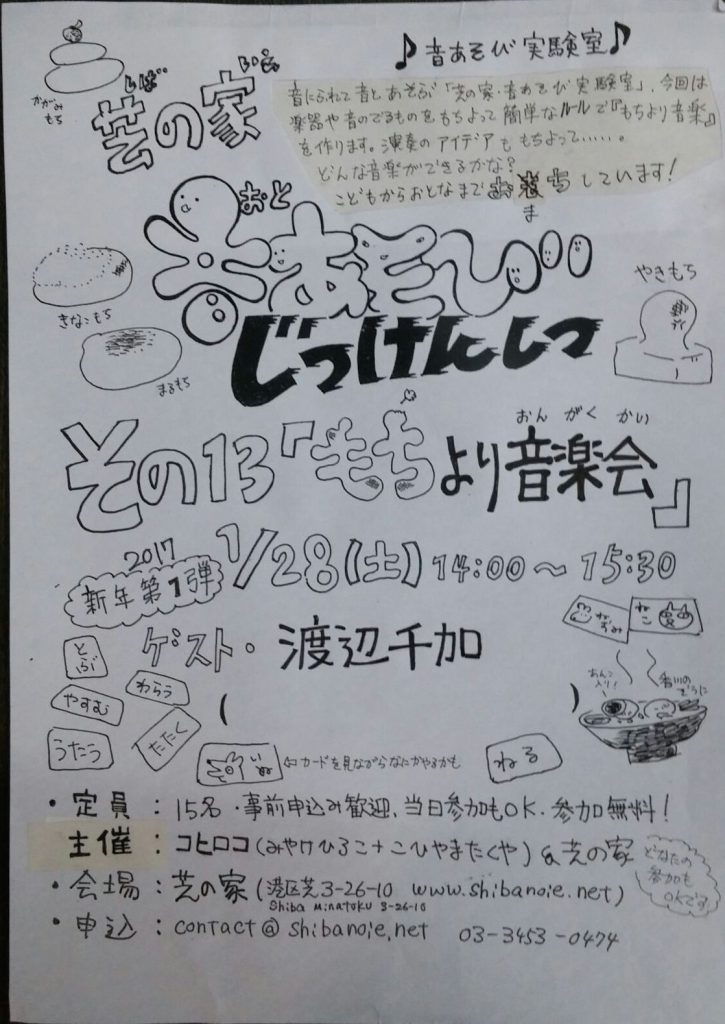 ♪音あそび実験室♪
かがみもち
しば いえ
芝の家
音にふれて音とあそぶ「芝の家・音あそび実験室」、今回は
楽器や音のでるものをもちよって簡単なルールで『もちより音楽』
を作ります。演奏のアイデアももちよって……。
どんな音楽ができるかな?
こどもからおとなまでお待ちしています!
ま
おと
音あそび
じっけんしつ
きなこもち
まるもち
やきもち
おん がく かい
その13『もちより音楽会』
2017
新年第1弾
1/28(土) 14:00～15:30
ゲスト・渡辺千加
( )
とぶ
わらう
やすむ
たたく
うたう
いぬ
⇦カードを見ながらなにかやるかも
ねる
ねずみ
ねこ
あんこ入り!
香川のぞうに
・定員:15名・事前申込み歓迎、当日参加もOK・参加無料!
主催:コヒロコ(みやけひろこ+こひやまたくや)&芝の家
・会場:芝の家(港区芝3-26-10 www.shibanoie.net)
Shiba Minatoku 3-26-10
どなたの参加もOKです
・申込:contact@shibanoie.net 03-3453-0474